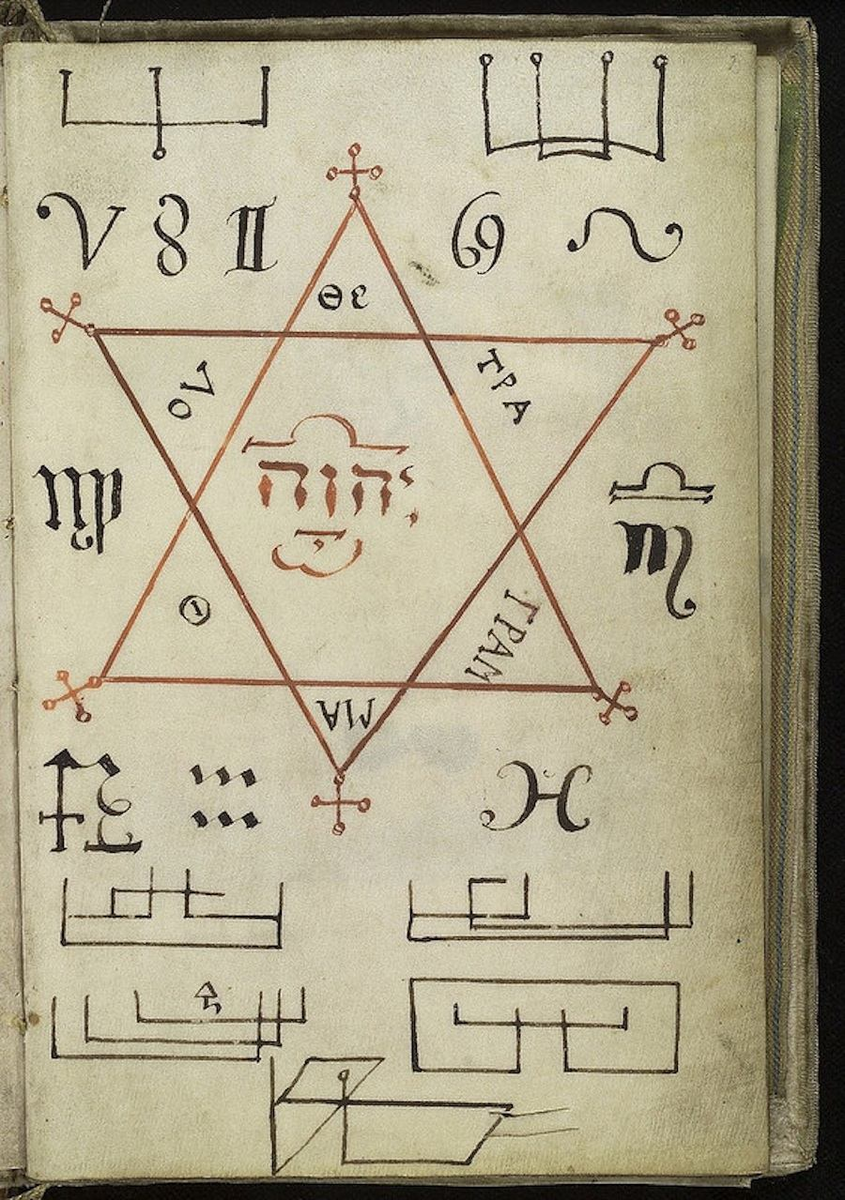 ♈ ♉ ♊ ♋ ♌
Θε
ΤΡΑ
ΓΡΑΜ
ΜΑ
Θ
ΟV
יהוה
♍ ♎
♏
♐ ♑ ♒ ♓